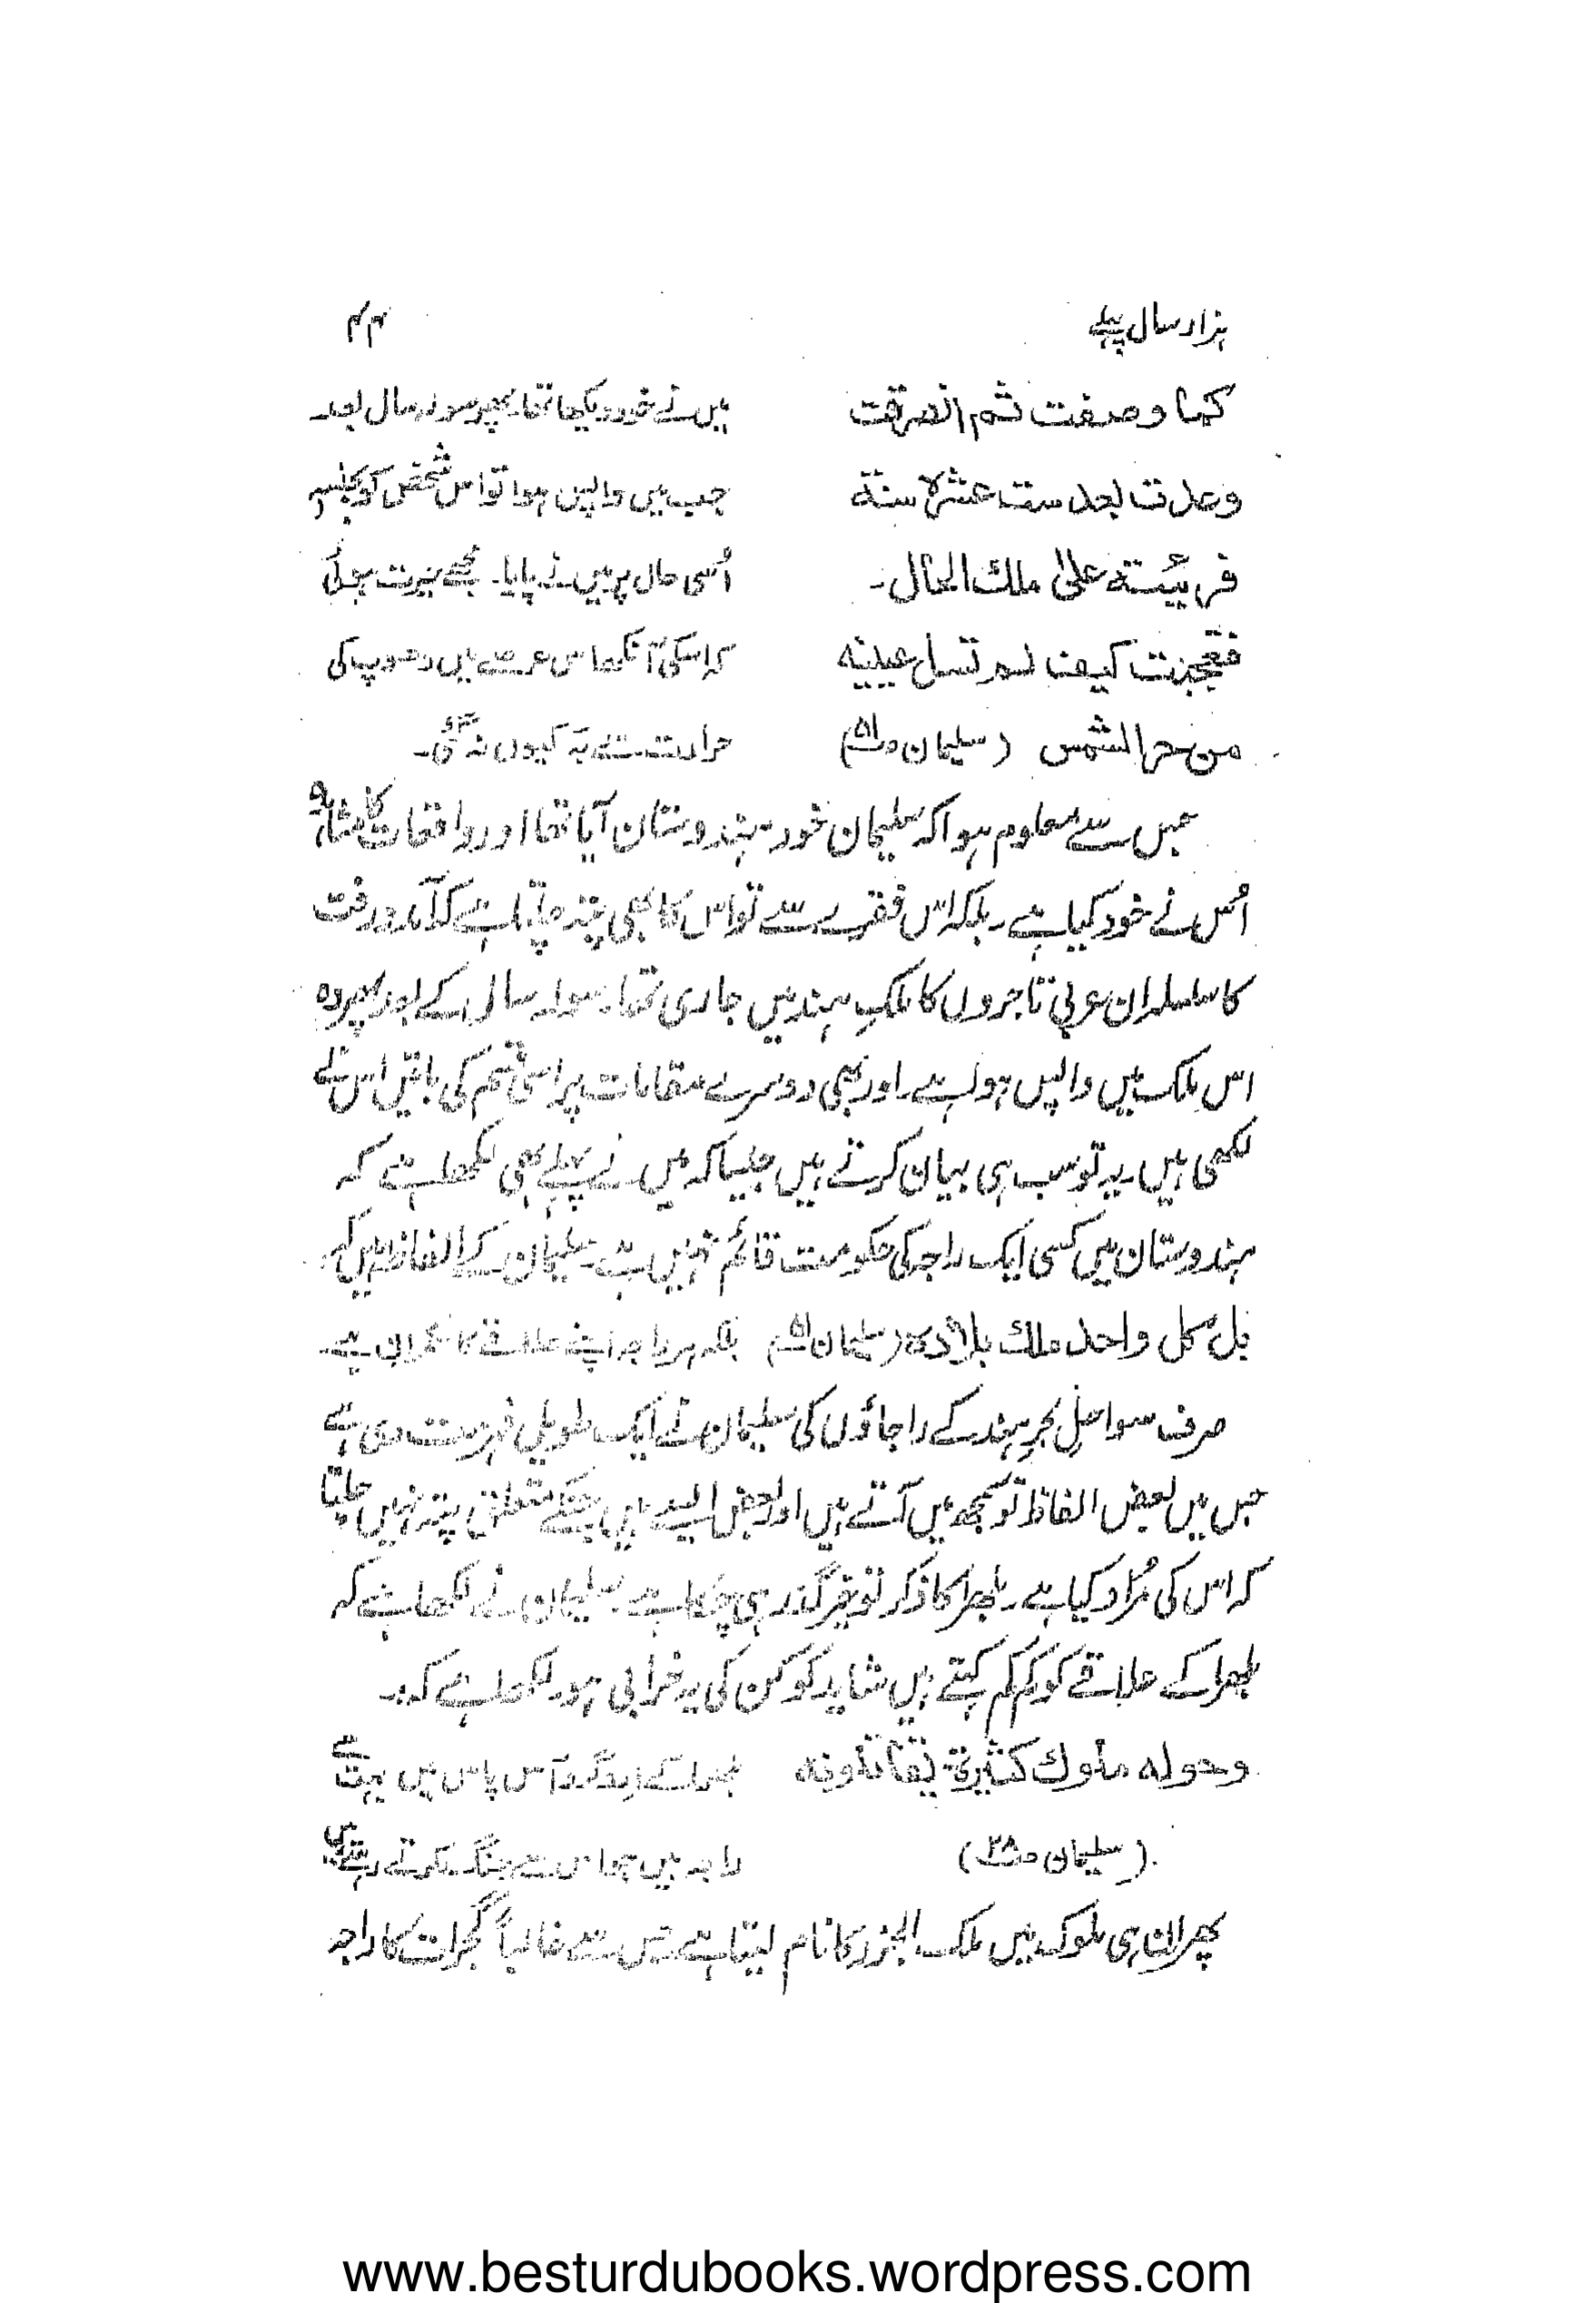 ہزار سال پہلے ۴۴
کما وصفت ثم انصرفت میں نے خود دیکھا تھا۔ پھر سولہ سال بعد
وعدت بعد ست عشرۃ سنۃ جب میں واپس ہوا تو اس شخص کو بجنسہٖ
فرئیتہ علیٰ ملك الحال۔ اُسی حال پر میں نے پایا۔ مجھے حیرت ہوئی
فتعجبت کیف لم تسل عینیہ کہ اسکی آنکھ اس عرصے میں دھوپ کی
من حر الشمس (سلیمان ص۵۱) حرارت سے بہ کیوں نہ گئی۔
جس سے معلوم ہوا کہ سلیمان خود ہندوستان آیا تھا اور واقعات کا مشاہدہ
اُس نے خود کیا ہے۔ بلکہ اس فقرے سے تو اس کا بھی پتہ چلتا ہے کہ آمد و رفت
کا سلسلہ ان عربی تاجروں کا ملکِ ہند میں جاری تھا۔ سولہ سال کے بعد پھر وہ
اس ملک میں واپس ہوا ہے۔ اور بھی دوسرے مقامات پر اسی قسم کی باتیں اس نے
لکھی ہیں۔ یہ تو سب ہی بیان کرتے ہیں جیسا کہ میں نے پہلے بھی لکھا ہے کہ
ہندوستان میں کسی ایک راجہ کی حکومت قائم نہیں ہے۔ سلیمان کے الفاظ ہیں کہ
بل کل واحد ملك بلادہ (سلیمان ص۵۱) بلکہ ہر راجہ اپنے علاقے کا حکمران ہے۔
صرف سواحلِ بحرِ ہند کے راجاؤں کی سلیمان نے ایک طویل فہرست دی ہے
جس میں بعض الفاظ تو سمجھ میں آتے ہیں اور بعض ایسے ہیں جنکے متعلق پتہ نہیں چلتا
کہ اس کی مُراد کیا ہے۔ بلہرا کا ذکر تو خیر گذر ہی چکا ہے۔ سلیمان نے لکھا ہے کہ
بلہرا کے علاقے کو کمکم کہتے ہیں شاید کوکن کی یہ خرابی ہو۔ لکھا ہے کہ:۔
وحولہ ملوك کثیرۃ یقاتلونہ بلہرا کے اردگرد آس پاس میں بہت سے
(سلیمان ص۲۸) راجہ ہیں جو اس سے جنگ کرتے رہتے ہیں
پھر ان ہی ملوک میں ملک الجزر کا نام لیتا ہے جس سے غالباً گجرات کا راجہ
www.besturdubooks.wordpress.com